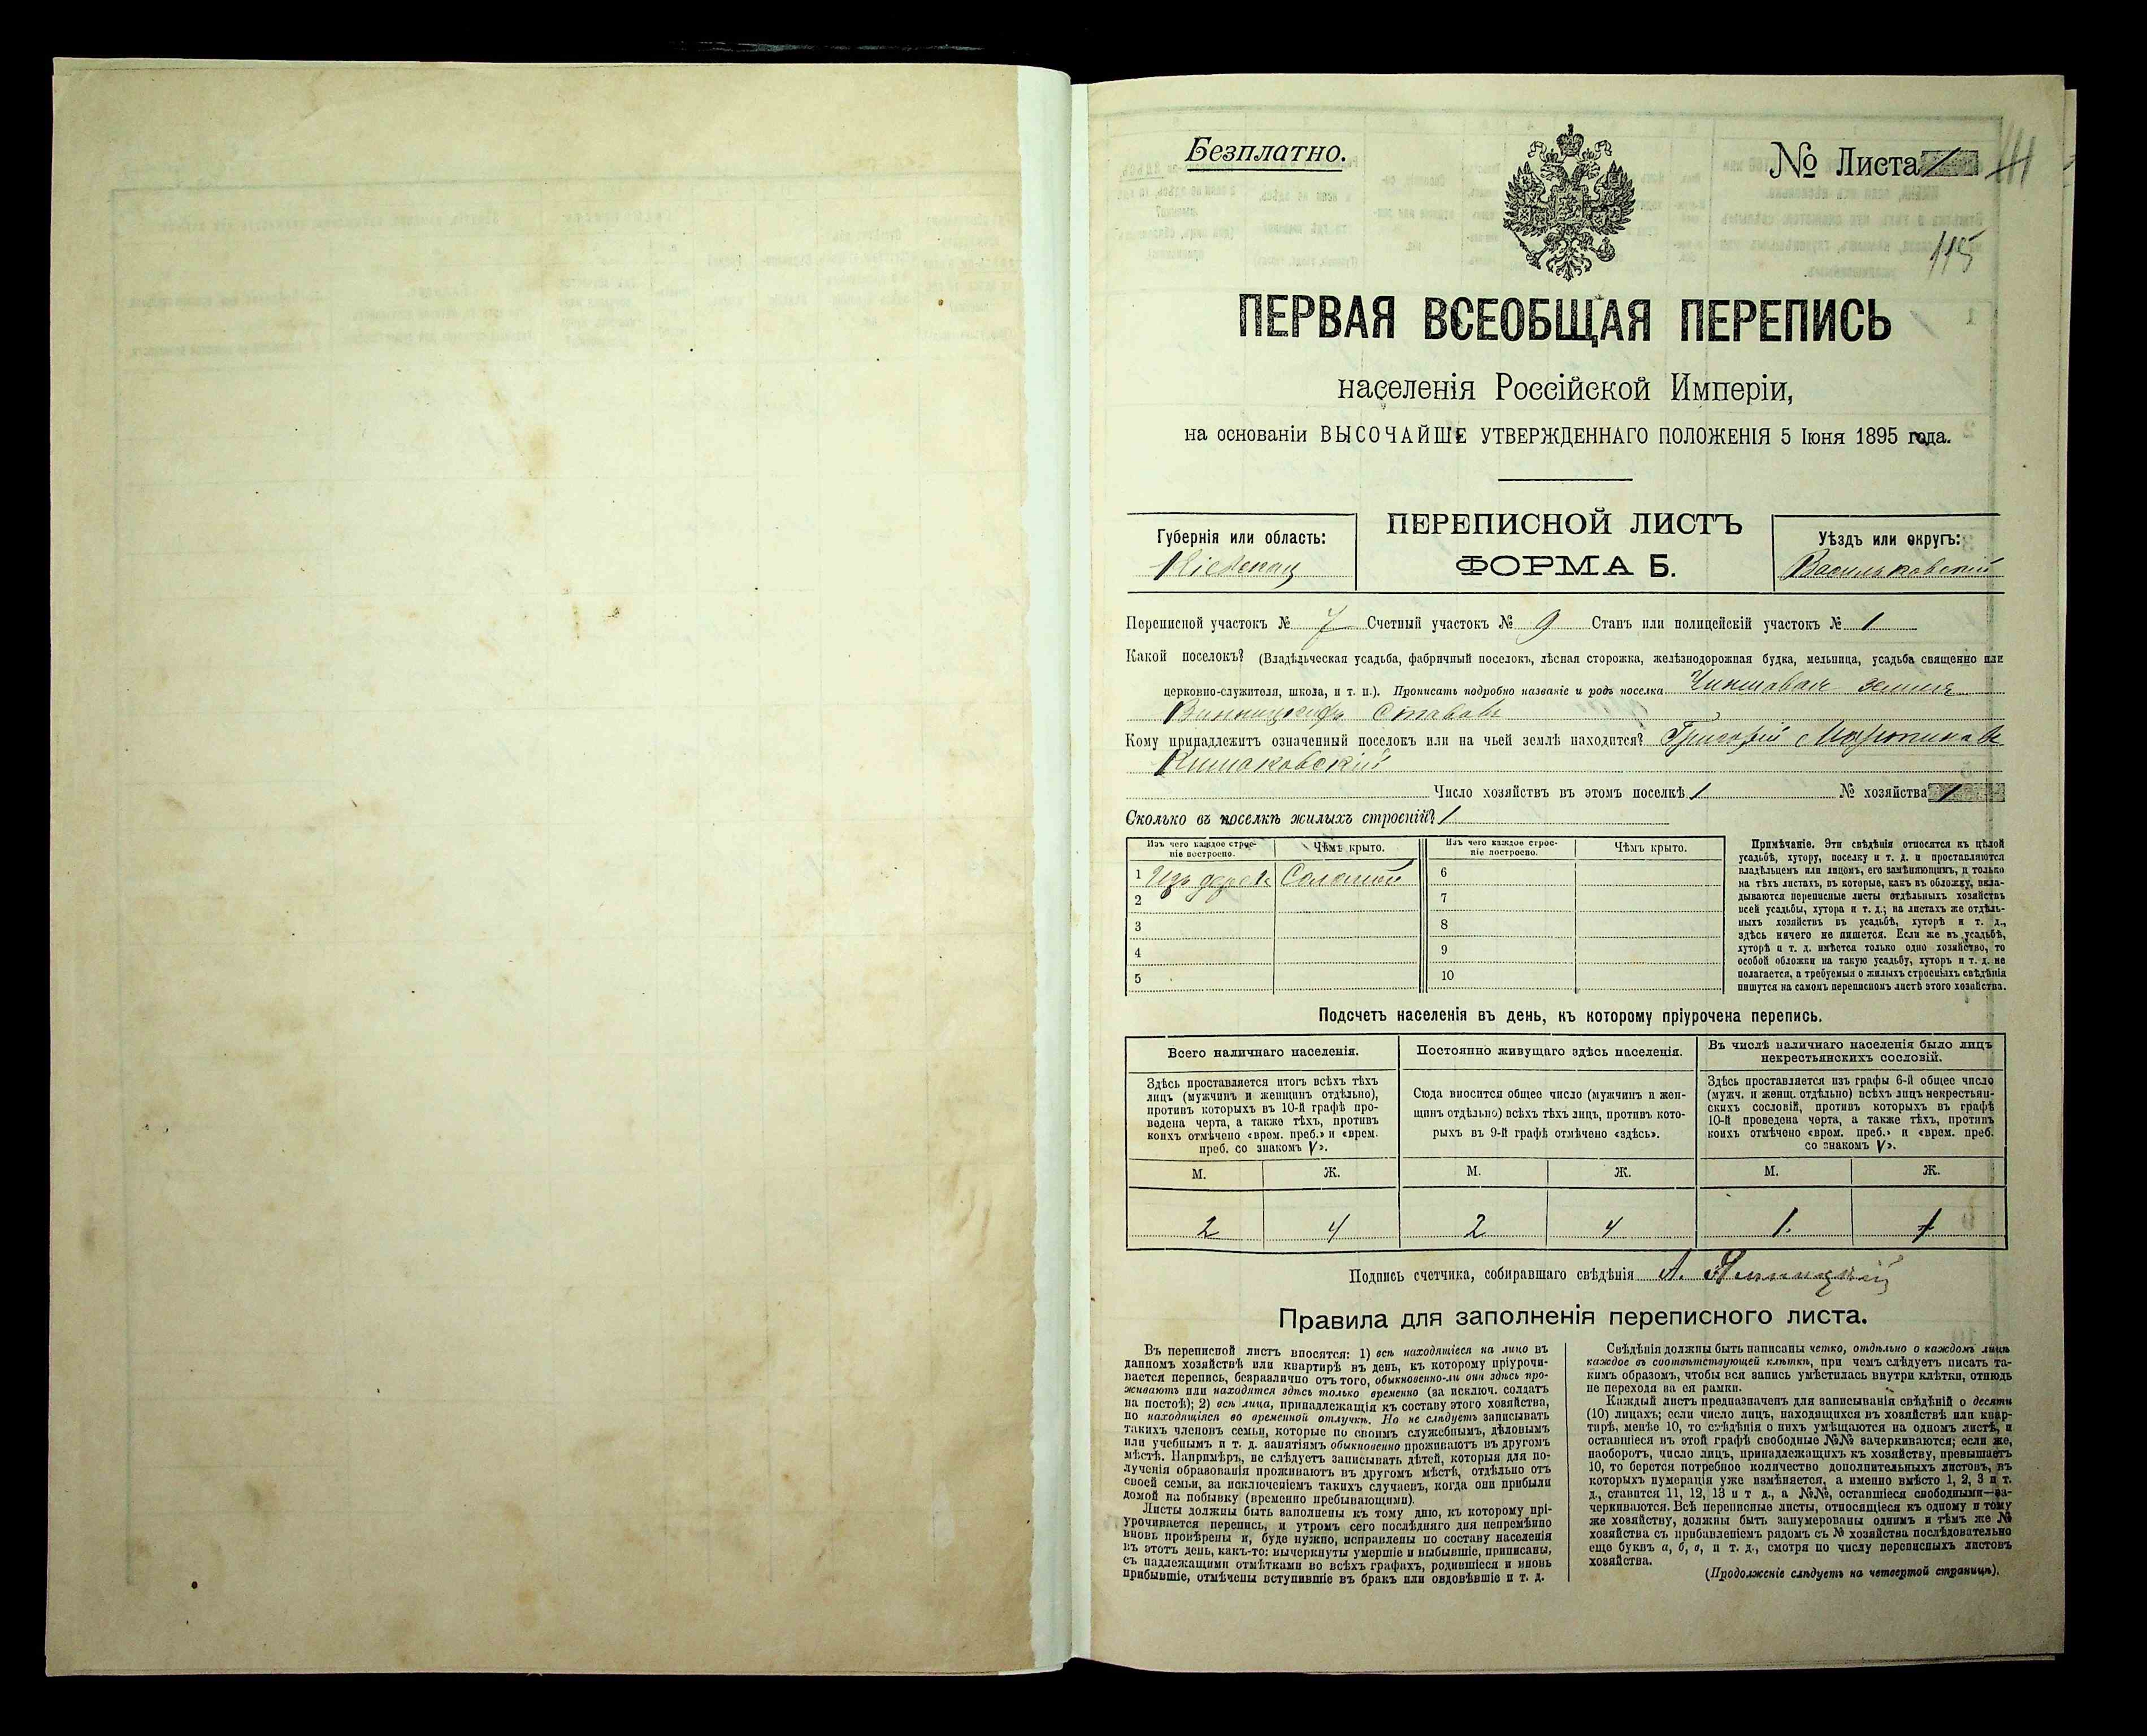 Безплатно.
№ Листа 1
115
ПЕРВАЯ ВСЕОБЩАЯ ПЕРЕПИСЬ
населенія Россійской Имперіи,
на основаніи ВЫСОЧАЙШЕ УТВЕРЖДЕННАГО ПОЛОЖЕНІЯ 5 Іюня 1895 года.
Губернія или область:
Кіевская
ПЕРЕПИСНОЙ ЛИСТЪ
ФОРМА Б.
Уѣздъ или округъ:
Васильковскій
Переписной участокъ № 7 Счетный участокъ № 9 Станъ или полицейскій участокъ № 1
Какой поселокъ? (Владѣльческая усадьба, фабричный поселокъ, лѣсная сторожка, желѣзнодорожная будка, мельница, усадьба священно или
церковно-служителя, школа, и т. п.). Прописать подробно названіе и родъ поселка Чиншовая земля
Ставовъ
Кому принадлежитъ означенный поселокъ или на чьей землѣ находится? Григорій
Число хозяйствъ въ этомъ поселкѣ 1 № хозяйства 1
Сколько въ поселкѣ жилыхъ строеній? 1
Изъ чего каждое строе-
ніе построено.
Чѣмъ крыто.
Изъ чего каждое строе-
ніе построено.
Чѣмъ крыто.
1 Изъ дерева Соломой
2
3
4
5
6
7
8
9
10
Примѣчаніе. Эти свѣдѣнія относятся къ цѣлой
усадьбѣ, хутору, поселку и т. д. и проставляются
владѣльцемъ или лицомъ, его замѣняющимъ, и только
на тѣхъ листахъ, въ которые, какъ въ обложку, вкла-
дываются переписные листы отдѣльныхъ хозяйствъ
всей усадьбы, хутора и т. д.; на листахъ же отдѣль-
ныхъ хозяйствъ въ усадьбѣ, хуторѣ и т. д.,
здѣсь ничего не пишется. Если же въ усадьбѣ,
хуторѣ и т. д. имѣется только одно хозяйство, то
особой обложки на такую усадьбу, хуторъ и т. д. не
полагается, а требуемыя о жилыхъ строеніяхъ свѣдѣнія
пишутся на самомъ переписномъ листѣ этого хозяйства.
Подсчетъ населенія въ день, къ которому пріурочена перепись.
Всего наличнаго населенія.
Здѣсь проставляется итогъ всѣхъ тѣхъ
лицъ (мужчинъ и женщинъ отдѣльно),
противъ которыхъ въ 10-й графѣ про-
ведена черта, а также тѣхъ, противъ
коихъ отмѣчено «врем. преб.» и «врем.
преб. со знакомъ V».
Постоянно живущаго здѣсь населенія.
Сюда вносится общее число (мужчинъ и жен-
щинъ отдѣльно) всѣхъ тѣхъ лицъ, противъ кото-
рыхъ въ 9-й графѣ отмѣчено «здѣсь».
Въ числѣ наличнаго населенія было лицъ
некрестьянскихъ сословій.
Здѣсь проставляется изъ графы 6-й общее число
(мужч. и женщ. отдѣльно) всѣхъ лицъ некрестьян-
скихъ сословій, противъ которыхъ въ графѣ
10-й проведена черта, а также тѣхъ, противъ
коихъ отмѣчено «врем. преб.» и «врем. преб.
со знакомъ V».
М. Ж. М. Ж. М. Ж.
2 4 2 4 1. 1
Подпись счетчика, собиравшаго свѣдѣнія А.
Правила для заполненія переписного листа.
Въ переписной листъ вносятся: 1) всѣ находящіеся на лицо въ
данномъ хозяйствѣ или квартирѣ въ день, къ которому пріурочи-
вается перепись, безразлично отъ того, обыкновенно-ли они здѣсь про-
живаютъ или находятся здѣсь только временно (за исключ. солдатъ
на постоѣ); 2) всѣ лица, принадлежащія къ составу этого хозяйства,
но находящіяся во временной отлучкѣ. Но не слѣдуетъ записывать
такихъ членовъ семьи, которые по своимъ служебнымъ, дѣловымъ
или учебнымъ и т. д. занятіямъ обыкновенно проживаютъ въ другомъ
мѣстѣ. Напримѣръ, не слѣдуетъ записывать дѣтей, которыя для по-
лученія образованія проживаютъ въ другомъ мѣстѣ, отдѣльно отъ
своей семьи, за исключеніемъ такихъ случаевъ, когда они прибыли
домой на побывку (временно пребывающими).
Листы должны быть заполнены къ тому дню, къ которому прі-
урочивается перепись, и утромъ сего послѣдняго дня непремѣнно
вновь провѣрены и, буде нужно, исправлены по составу населенія
въ этотъ день, какъ-то: вычеркнуты умершіе и выбывшіе, приписаны,
съ надлежащими отмѣтками во всѣхъ графахъ, родившіеся и вновь
прибывшіе, отмѣчены вступившіе въ бракъ или овдовѣвшіе и т. д.
Свѣдѣнія должны быть написаны четко, отдѣльно о каждомъ лицѣ
каждое въ соотвѣтствующей клѣткѣ, при чемъ слѣдуетъ писать та-
кимъ образомъ, чтобы вся запись умѣстилась внутри клѣтки, отнюдь
не переходя за ея рамки.
Каждый листъ предназначенъ для записыванія свѣдѣній о десяти
(10) лицахъ; если число лицъ, находящихся въ хозяйствѣ или квар-
тирѣ, менѣе 10, то свѣдѣнія о нихъ умѣщаются на одномъ листѣ, и
оставшіеся въ этой графѣ свободные №№ зачеркиваются; если же,
наоборотъ, число лицъ, принадлежащихъ къ хозяйству, превышаетъ
10, то берется потребное количество дополнительныхъ листовъ, въ
которыхъ нумерація уже измѣняется, а именно вмѣсто 1, 2, 3 и т.
д., ставится 11, 12, 13 и т д., а №№, оставшіеся свободными—за-
черкиваются. Всѣ переписные листы, относящіеся къ одному и тому
же хозяйству, должны быть занумерованы однимъ и тѣмъ же №
хозяйства съ прибавленіемъ рядомъ съ № хозяйства послѣдовательно
еще буквъ а, б, в, и т. д., смотря по числу переписныхъ листовъ
хозяйства.
(Продолженіе слѣдуетъ на четвертой страницѣ).